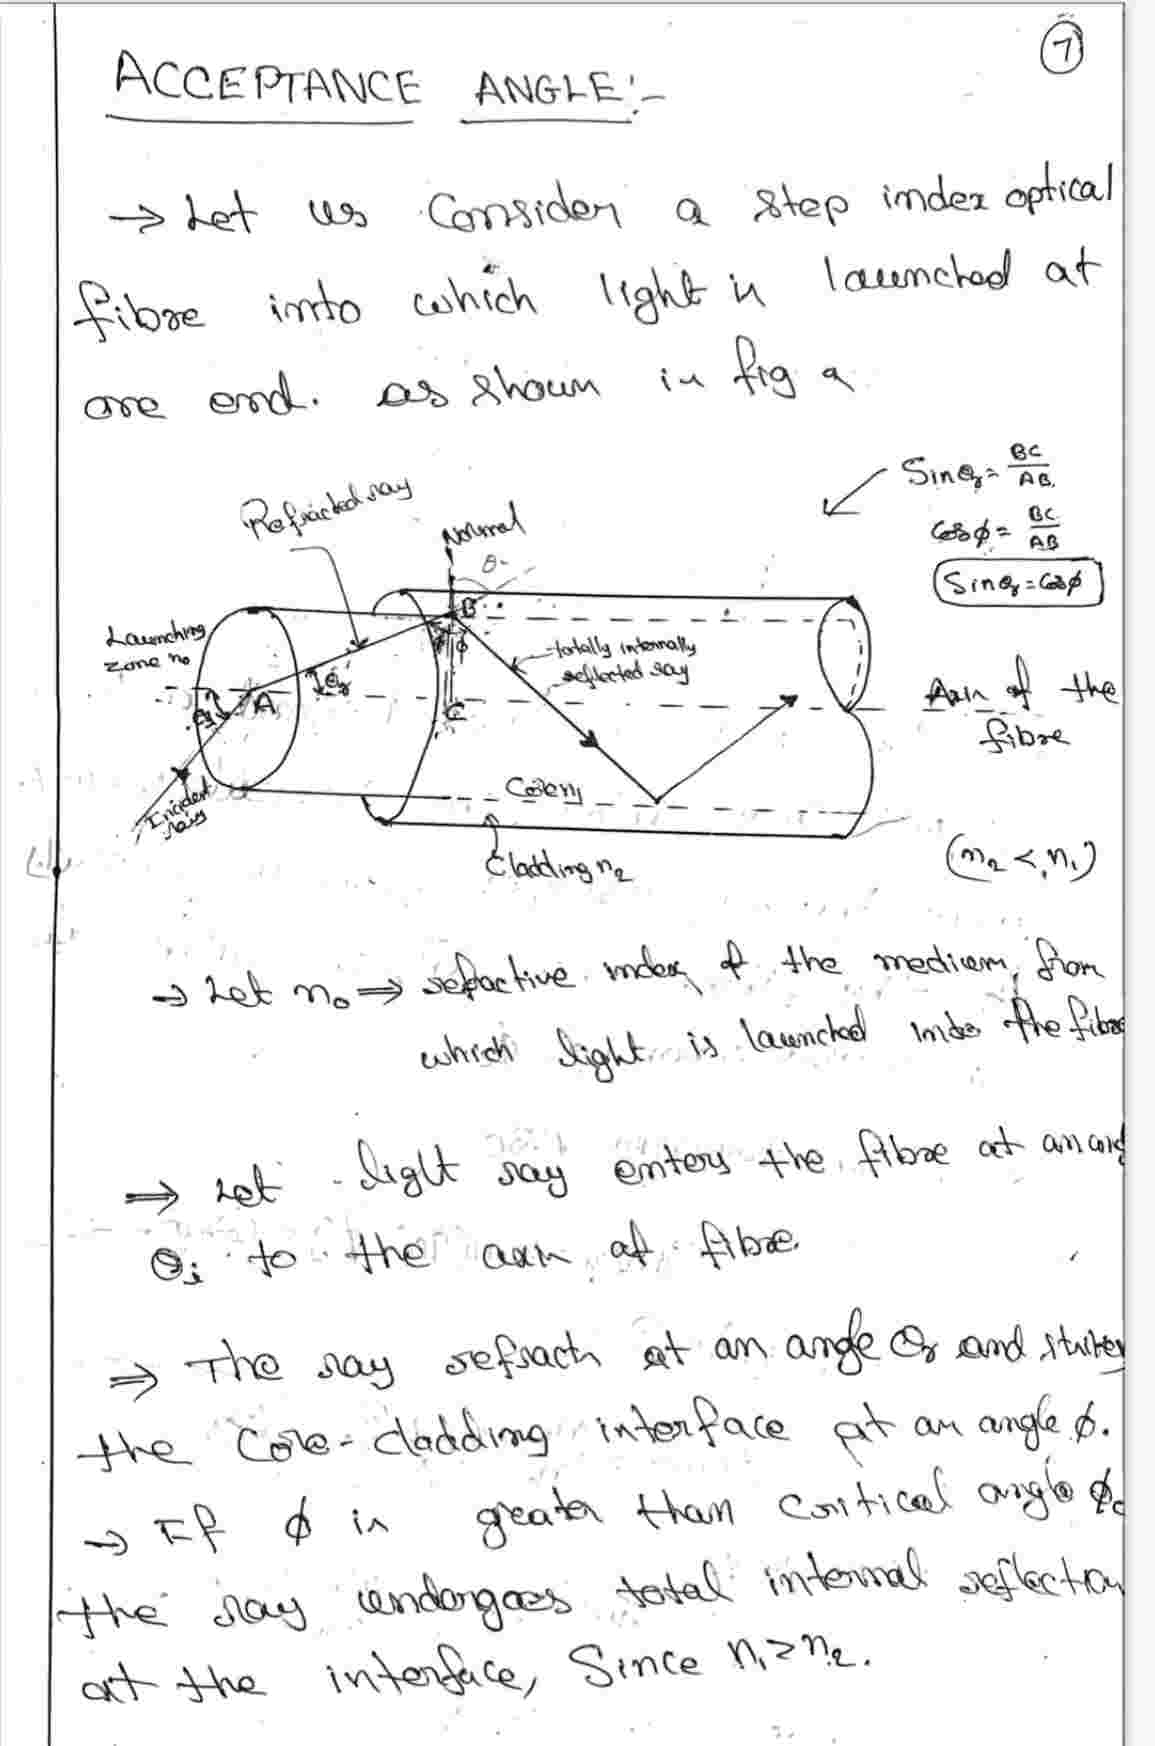 7
ACCEPTANCE ANGLE:-
→ Let us Consider a step index optical
fibre into which light is launched at
one end. as shown in fig a
Sinθr = BC/AB.
Cosφ = BC/AB
Sinθr = Cosφ
Refracted ray
Normal
θ
B
Launching
zone n₀
totally internally
reflected ray
φ
θr
A
θi
C
Axis of the
fibre
Incident
ray
Core n₁
Cladding n₂
(n₂ < n₁)
→ Let n₀ ⇒ refractive index of the medium, from
which light is launched into the fibre
⇒ Let light ray enters the fibre at an ang
θi to the axis of fibre.
⇒ The ray refracts at an angle θr and strikes
the Core-cladding interface at an angle φ.
→ If φ is greater than critical angle φc
the ray undergoes total internal reflection
at the interface, Since n₁>n₂.